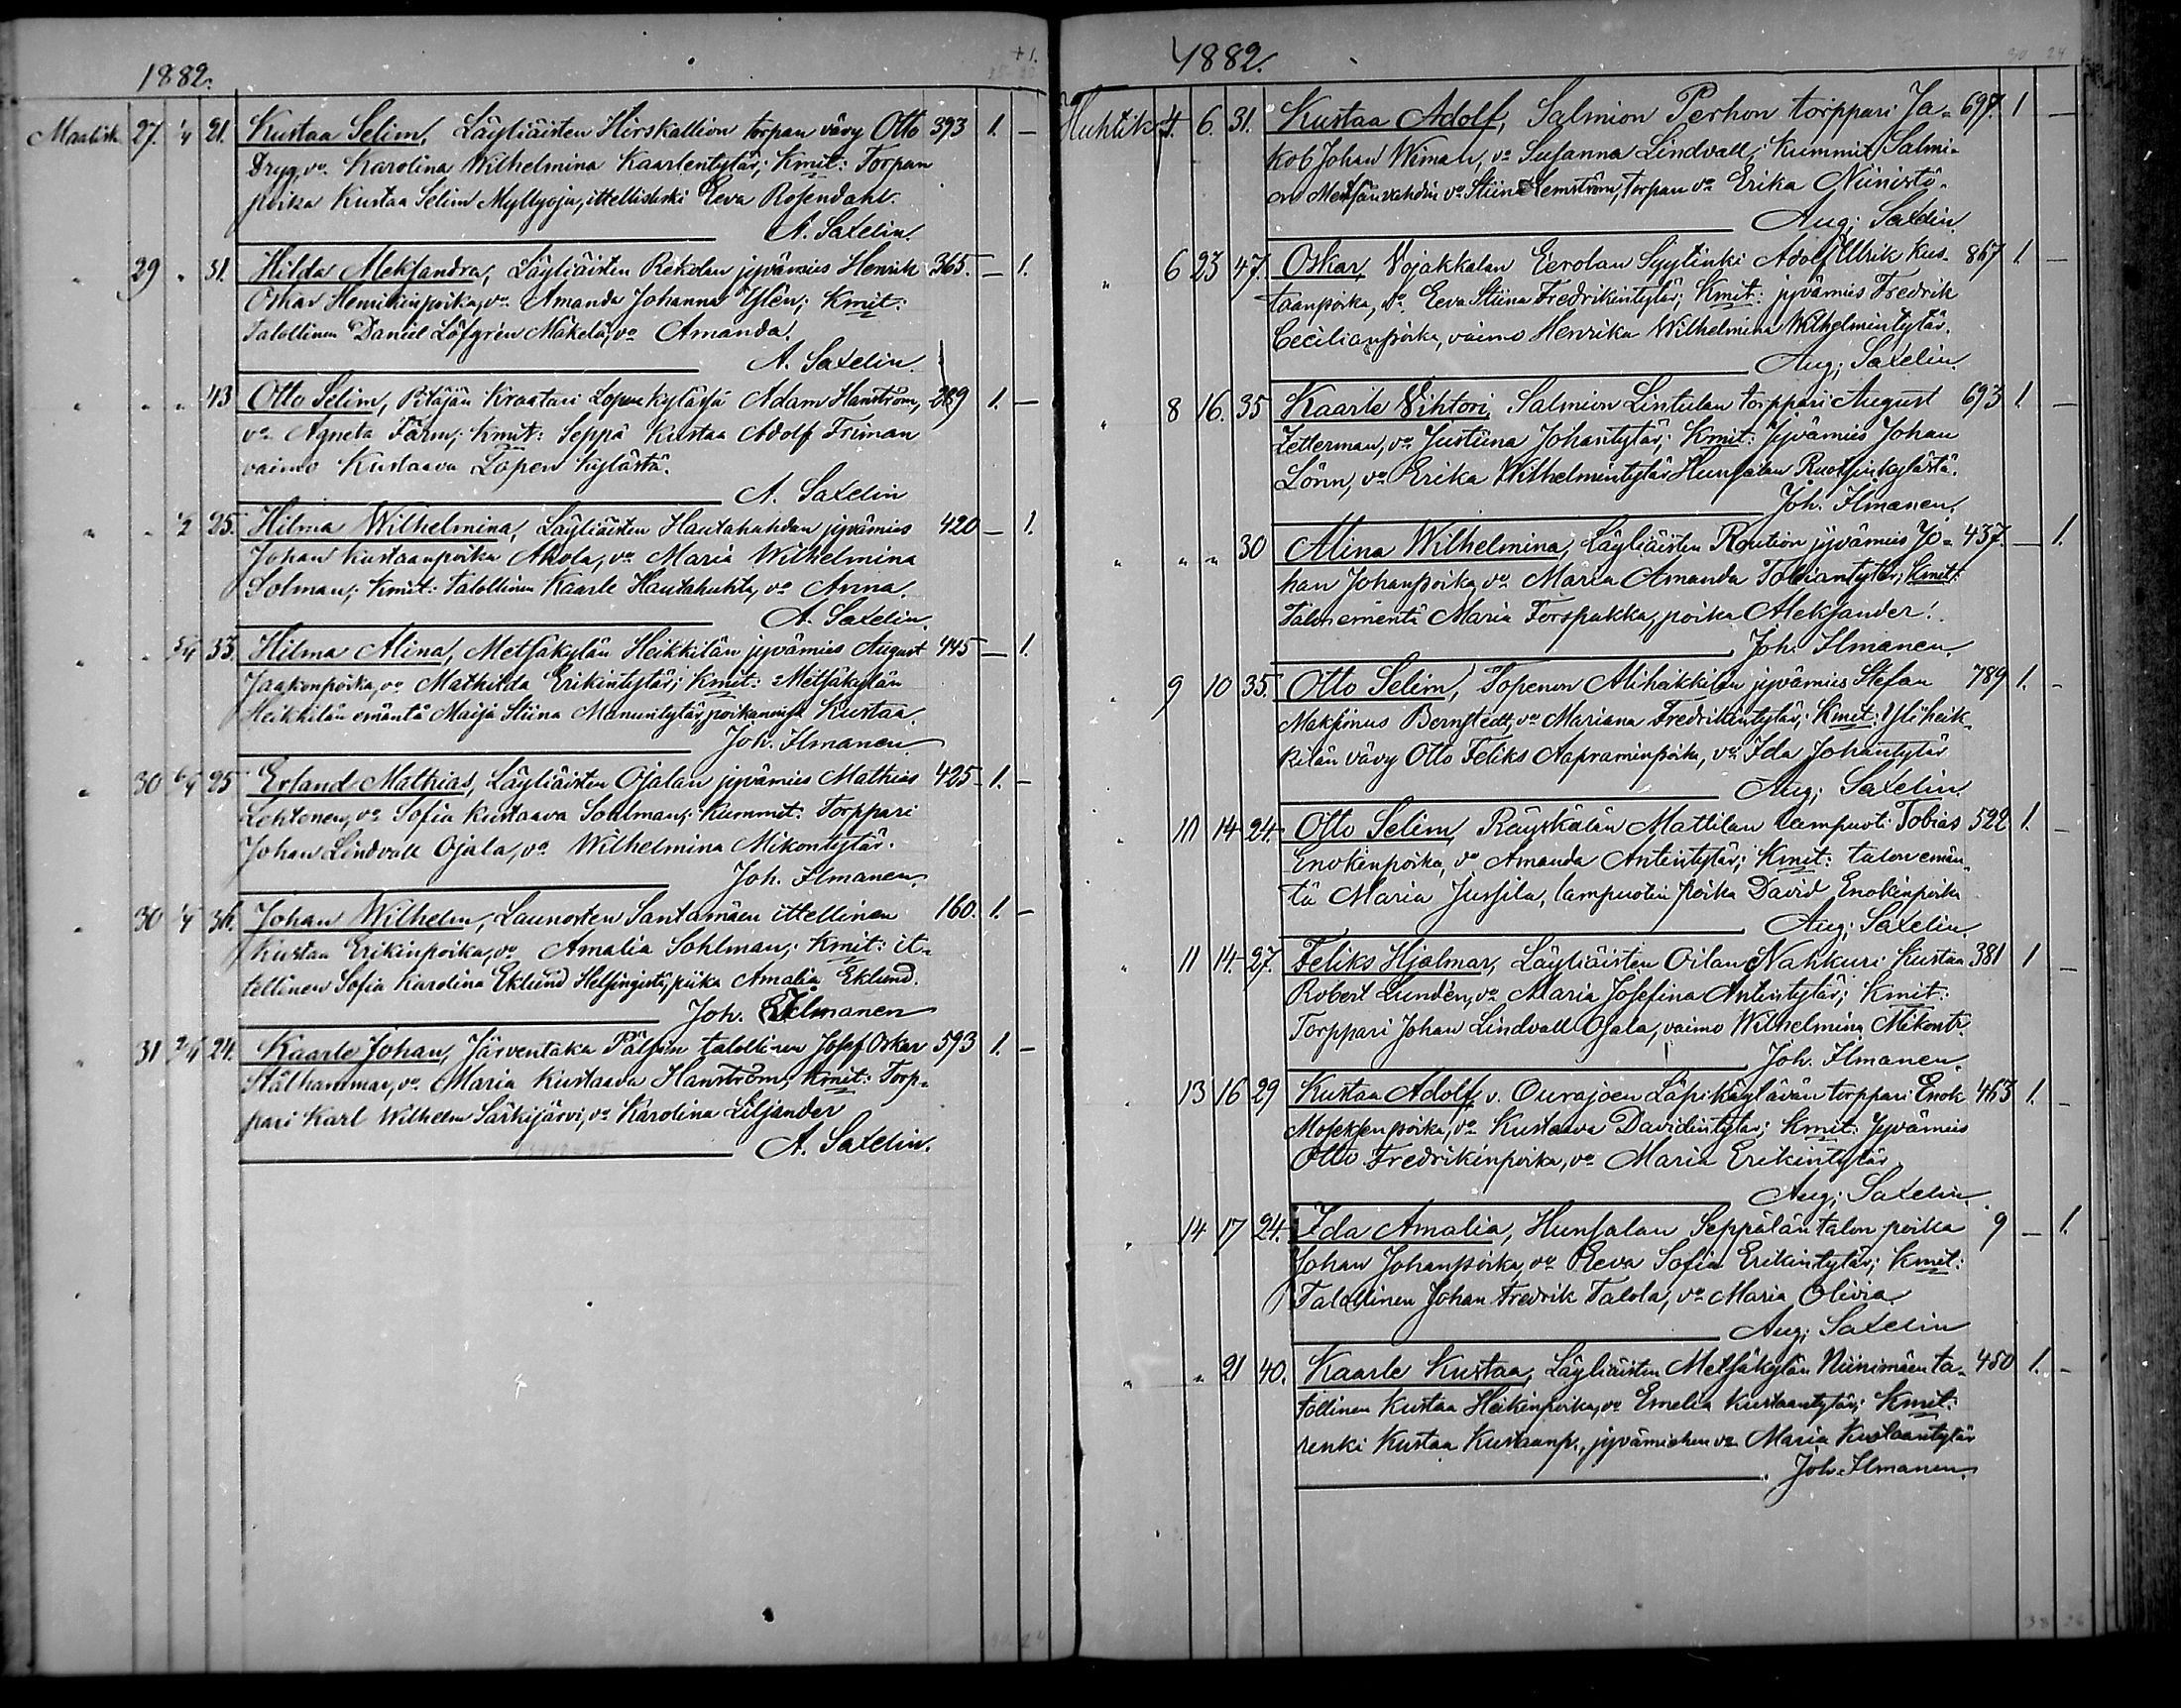 1882.
Maalisk. 27. 1/4 21. Kustaa Selim, Läyliäisten Hirskallion torpan vävy Otto 393 1. —
Dryg, vo Karolina Wilhelmina Kaarlentytär; Kmit: Torpan
poika Kustaa Selim Myllyoja, ittellisleski Eeva Rosendahl.
A. Saxelin.
" 29 " 31. Hilda Aleksandra, Läyliäisten Rekolan jyvämies Henrik 365. — 1.
Oskar Henrikinpoika, vo Amanda Johanna Ylén; Kmit:
Talollinen Daniel Löfgrén Mäkelä, vo Amanda.
A. Saxelin.
" " " 43 Otto Selim, Pitäjän Kraatari Lopen kylässä Adam Hanström, 289 1. —
vo Agneta Färm; Kmit: Seppä Kustaa Adolf Friman
vaimo Kustaava Lopen kylästä.
A. Saxelin
" " 1/2 25. Hilma Wilhelmina, Läyliäisten Hautahuhdan jyvämies 420 — 1.
Johan Kustaanpoika Ahola, vo Maria Wilhelmina
Solman; Kmit: Talollinen Kaarle Hautahuhta, vo Anna.
A. Saxelin.
" " 5/4 33. Hilma Alina, Metsäkylän Heikkilän jyvämies August 445 — 1.
Jaakonpoika, vo Mathilda Erikintytär; Kmit: Metsäkylän
Heikkilän emäntä Maija Stiina Manuntytär, poikansa Kustaa.
Joh. Ilmanen
" 30 6/4 25 Erland Mathias, Läyliäisten Ojalan jyvämies Mathias 425 1. —
Lehtonen, vo Sofia Kustaava Sohlman; Kummit: Torppari
Johan Lindvall Ojala, vo Wilhelmina Mikontytär.
Joh. Ilmanen.
" 30 1/4 36. Johan Wilhelm, Launosten Santamäen ittellinen 160. 1. —
Kustaa Erikinpoika, vo Amalia Sohlman; Kmit: it-
tellinen Sofia Karolina Eklund Helsingistä, piika Amalia Eklund.
Joh. Ilmanen
" 31 2/4 24. Kaarle Johan, Järventaka Pälsin talollinen Josef Oskar 593 1. —
Stålhammar, vo Maria Kustaava Hanström; Kmit: Torp-
pari Karl Wilhelm Särkijärvi, vo Karolina Liljander
A. Saxelin.
1882.
Huhtik. 4. 6. 31. Kustaa Adolf, Salmion Perhon torppari Ja- 697. 1 —
kob Johan Wiman, vo Susanna Lindvall; Kummit Salmi-
on Metsänvahdin vo Stiina Hemström, torpan vo Erika Niinistö.
Aug; Saxelin
" 6 23 47. Oskar, Vojakkalan Eerolan Syytinki Adolf Ulrik Kus- 867 1 —
taanpoika, vo Eeva Stiina Fredrikintytär; Kmit: jyvämies Fredrik
Cecilianpoika, vaimo Henrika Wilhelmina Wilhelmintytär.
Aug; Saxelin.
" 8 16. 35 Kaarle Vihtori, Salmion Lintulan torppari August 693 1. —
Zetterman, vo Justiina Johantytär; Kmit: Jyvämies Johan
Lönn, vo Erika Wilhelmintytär Hunsalan Ruotsinkylästä.
Joh. Ilmanen.
" " " 30 Alina Wilhelmina, Läyliäisten Roution jyvämies Jo- 437. — 1.
han Johanpoika, vo Maria Amanda Tobiantytär; Kmit:
Talon emäntä Maria Torspakka, poika Aleksander.
Joh. Ilmanen.
" 9 10 35. Otto Selim, Topenon Aliheikkilän jyvämies Stefan 789 1. —
Maksimus Bernstedt, vo Mariana Fredrikintytär; Kmit: Yliheik-
kilän vävy Otto Feliks Aapraminpoika, vo Ida Johantytär
Aug; Saxelin.
" 11 14 24. Otto Selim, Räyskälän Mattilan lampuoti Tobias 522 1. —
Enokinpoika, vo Amanda Antintytär; Kmit: talon emän-
tä Maria Jussila, lampuotin poika David Enokinpoika
Aug; Saxelin.
" 11 14. 27. Feliks Hjalmar, Läyliäisten Oilan Nahkuri Kustaa 381 1 —
Robert Lundén, vo Maria Josefina Antintytär; Kmit:
Torppari Johan Lindvall Ojala, vaimo Wilhelmina Mikontr.
Joh. Ilmanen.
" 13 16 29 Kustaa Adolf v. Ourajoen Läpikäytävän torppari Enok 463 1. —
Moseksenpoika, vo Kustaava Davidintytär; Kmit: Jyvämies
Otto Fredrikinpoika, vo Maria Erikintytär
Aug; Saxelin.
" 14 17 24. Ida Amalia, Hunsalan Seppälän talon poika 9 — 1.
Johan Johanpoika, vo Eeva Sofia Erikintytär; Kmit:
Talollinen Johan Fredrik Talola, vo Maria Olivia.
Aug; Saxelin
" " 21 40. Kaarle Kustaa, Läyliäisten Metsäkylän Niinimäen ta- 450 1. —
lollinen Kustaa Heikinpoika, vo Emelia Kustaantytär; Kmit:
renki Kustaa Kustaanp., jyvämiehen vo Maria Kustaantytär
Joh. Ilmanen.